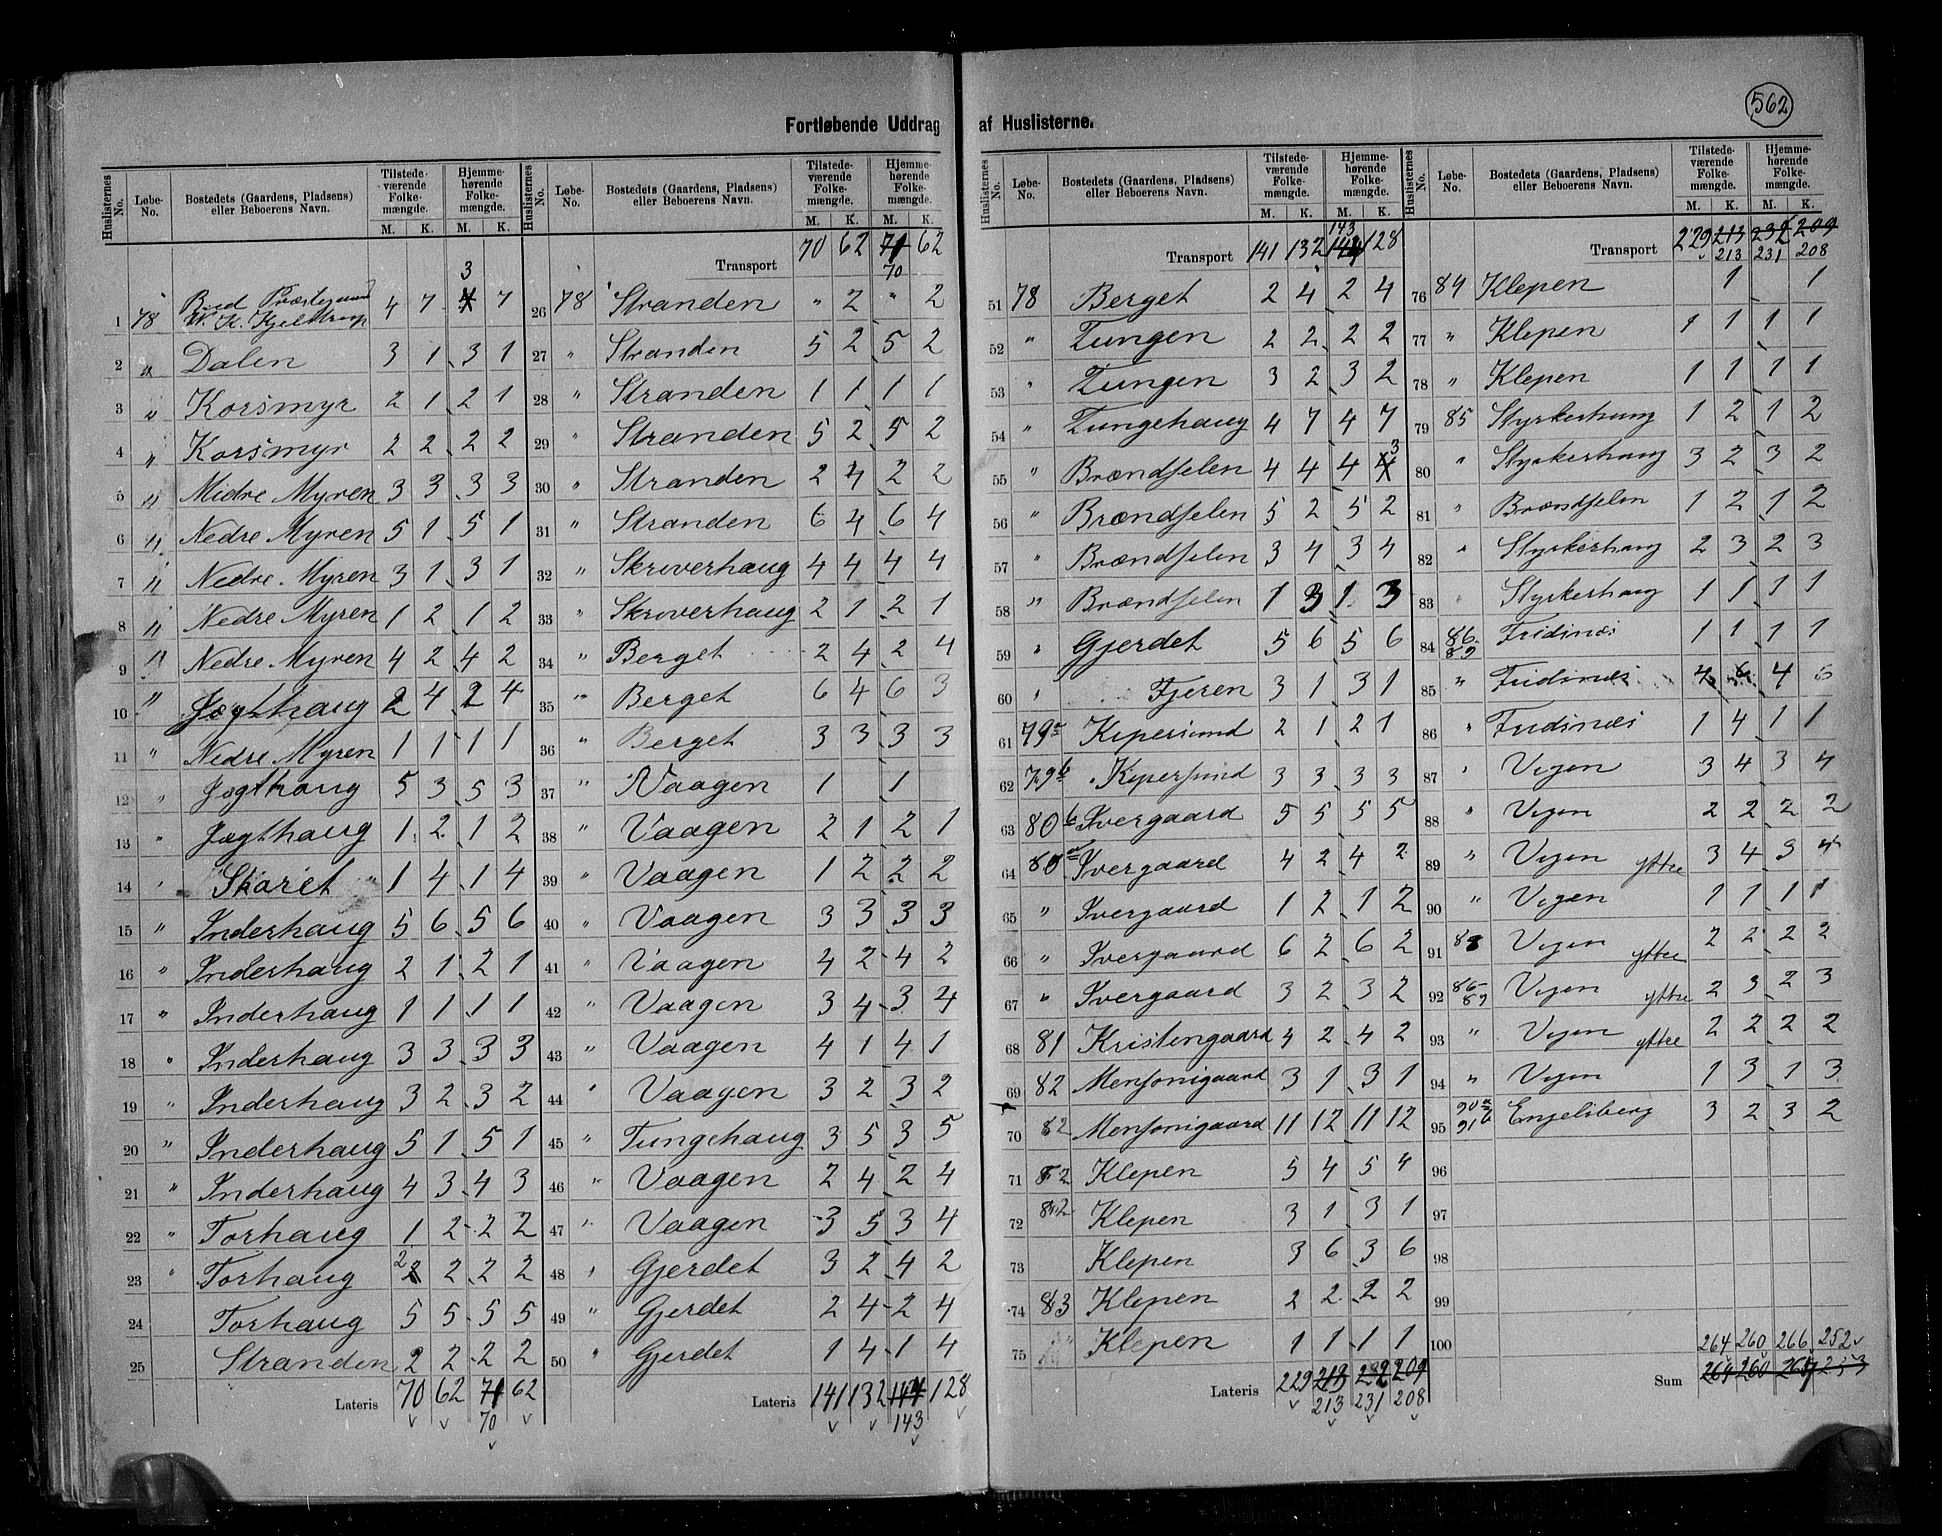 562
Fortløbende Uddrag af Huslisterne.
Huslisternes No. Løbe-No. Bostedets (Gaardens, Pladsens) eller Beboerens Navn. Tilstedeværende Folkemængde. M. K. Hjemmehørende Folkemængde. M. K.
3
1 78 Bred Præstegaard W. K. Kjelstrup 4 7 4 7
2 " Dalen 3 1 3 1
3 " Korsmyr 2 1 2 1
4 " Korsmyr 2 2 2 2
5 " Midre Myren 3 3 3 3
6 " Nedre Myren 5 1 5 1
7 " Nedre Myren 3 1 3 1
8 " Nedre Myren 1 2 1 2
9 " Nedre Myren 4 2 4 2
10 " Jægthaug 2 4 2 4
11 " Nedre Myren 1 1 1 1
12 " Jægthaug 5 3 5 3
13 " Jægthaug 1 2 1 2
14 " Skaret 1 4 1 4
15 " Inderhaug 5 6 5 6
16 " Inderhaug 2 1 2 1
17 " Inderhaug 1 1 1 1
18 " Inderhaug 3 3 3 3
19 " Inderhaug 3 2 3 2
20 " Inderhaug 5 1 5 1
21 " Inderhaug 4 3 4 3
22 " Torhaug 1 2 2 2
23 " Torhaug 2 2 2 2
24 Torhaug 5 5 5 5
25 Stranden 2 2 2 2
Lateris 70 62 71 62
70
Huslisternes No. Løbe-No. Bostedets (Gaardens, Pladsens) eller Beboerens Navn. Tilstedeværende Folkemængde. M. K. Hjemmehørende Folkemængde. M. K.
Transport 70 62 71 62
70
26 78 Stranden " 2 " 2
27 " Stranden 5 2 5 2
28 " Stranden 1 1 1 1
29 " Stranden 5 2 5 2
30 " Stranden 2 4 2 2
31 " Stranden 6 4 6 4
32 " Skreverhaug 4 4 4 4
33 " Skroverhaug 2 1 2 1
34 " Berget 2 4 2 4
35 " Berget 6 4 6 3
36 " Berget 3 3 3 3
37 " Vaagen 1 1
38 " Vaagen 2 1 2 1
39 " Vaagen 1 2 2 2
40 " Vaagen 3 3 3 3
41 " Vaagen 4 2 4 2
42 " Vaagen 3 4 3 4
43 " Vaagen 4 1 4 1
44 " Vaagen 3 2 3 2
45 " Tungehaug 3 5 3 5
46 " Vaagen 2 4 2 4
47 " Vaagen 3 5 3 4
48 " Gjerdet 3 2 4 2
49 " Gjerdet 2 4 2 4
50 " Gjerdet 1 4 1 4
Lateris 141 132 144 128
143
Huslisternes No. Løbe-No. Bostedets (Gaardens, Pladsens) eller Beboerens Navn. Tilstedeværende Folkemængde. M. K. Hjemmehørende Folkemængde. M. K.
143
Transport 141 132 144 128
51 78 Berget 2 4 2 4
52 " Tungen 2 2 2 2
53 " Tungen 3 2 3 2
54 " Tungehaug 4 7 4 7
55 " Brændselen 4 4 4 4 3
56 " Brændselen 5 2 5 2
57 " Brændselen 3 4 3 4
58 " Brændselen 1 3 1 3
59 " Gjerdet 5 6 5 6
60 " Fjeren 3 1 3 1
61 79a Kipersund 2 1 2 1
62 79b Kipersund 3 3 3 3
63 80b Ivergaard 5 5 5 5
64 80a Ivergaard 4 2 4 2
65 " Ivergaard 1 2 1 2
66 " Ivergaard 6 2 6 2
67 " Ivergaard 3 2 3 2
68 81 Kristengaard 4 2 4 2
69 82 Mensonigaard 3 1 3 1
70 82 Mensonigaard 11 12 11 12
71 82 Klepen 5 4 5 4
72 82 Klepen 3 1 3 1
73 Klepen 3 6 3 6
74 83 Klepen 2 2 2 2
75 Klepen 1 1 1 1
Lateris 229 213 232 209
213 231 208
Huslisternes No. Løbe-No. Bostedets (Gaardens, Pladsens) eller Beboerens Navn. Tilstedeværende Folkemængde. M. K. Hjemmehørende Folkemængde. M. K.
Transport 229 213 232 209
213 231 208
76 84 Klepen 1 1
77 " Klepen 1 1 1 1
78 " Klepen 1 1 1 1
79 85 Styrkerhaug 1 2 1 2
80 " Styrkerhaug 3 2 3 2
81 " Brændselen 1 2 1 2
82 " Styrkerhaug 2 3 2 3
83 " Styrkerhaug 1 1 1 1
84 86-89 Fridinæs 1 1 1 1
85 " Fridinæs 4 6 4 6
86 " Fridinæs 1 4 1 1
87 " Vigen 3 4 3 4
88 " Vigen 2 2 2 2
89 " Vigen yttre 3 4 3 4
90 " Vigen 1 1 1 1
91 88 Vigen yttre 2 2 2 2
92 86-89 Vigen yttre 2 3 2 3
93 " Vigen yttre 2 2 2 2
94 " Vigen 1 3 1 3
95 90a 91b Engelsberg 3 2 3 2
96
97
98
99
100
264 260 266 252
Sum 264 260 267 253